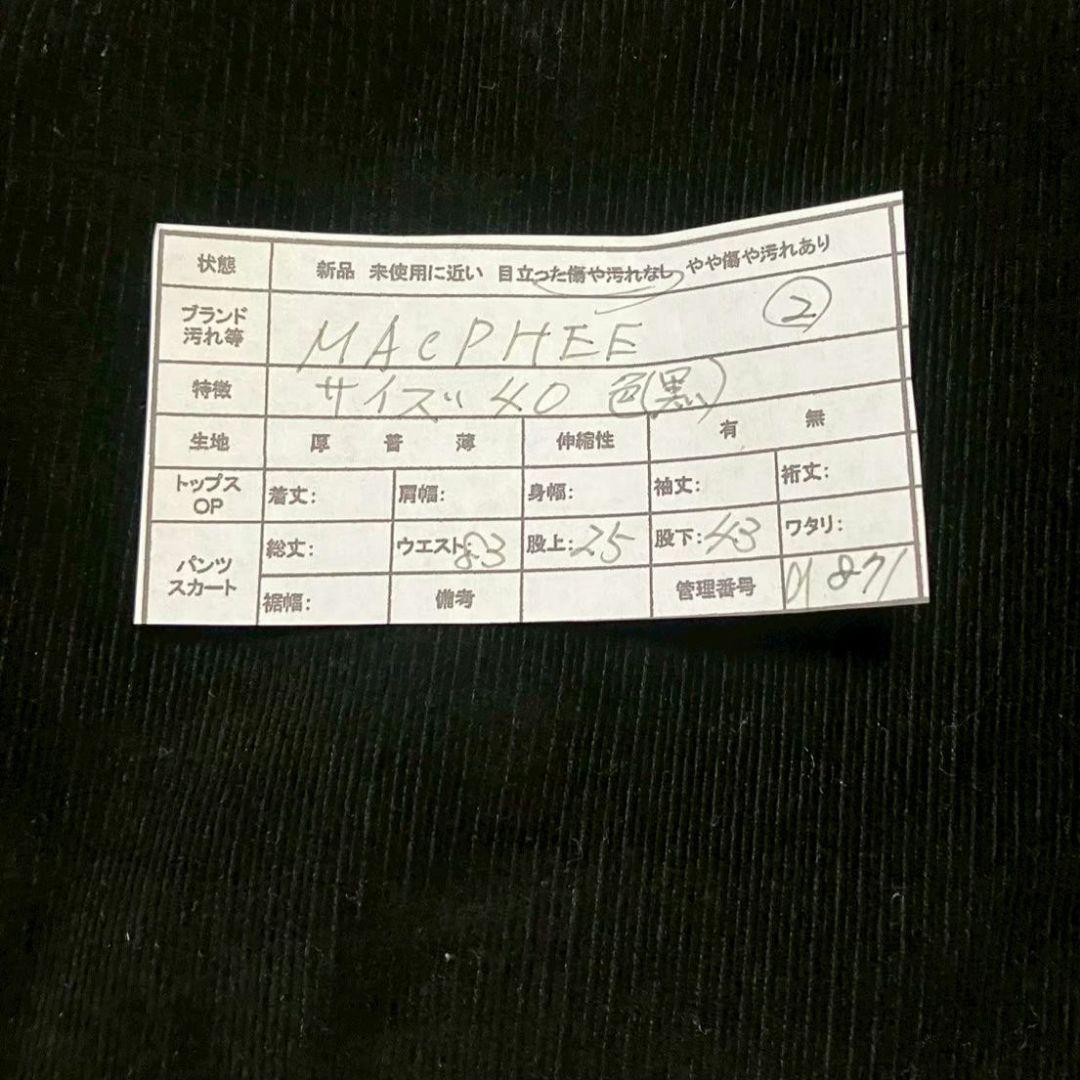 状態 新品 未使用に近い 目立った傷や汚れなし やや傷や汚れあり
ブランド 汚れ等 MACPHEE ②
特徴 サイズ 40 色(黒)
生地 厚 普 薄 伸縮性 有 無
トップス OP 着丈: 肩幅: 身幅: 袖丈: 裄丈:
パンツ スカート 総丈: ウエスト: 83 股上: 25 股下: 43 ワタリ:
裾幅: 備考 管理番号 871